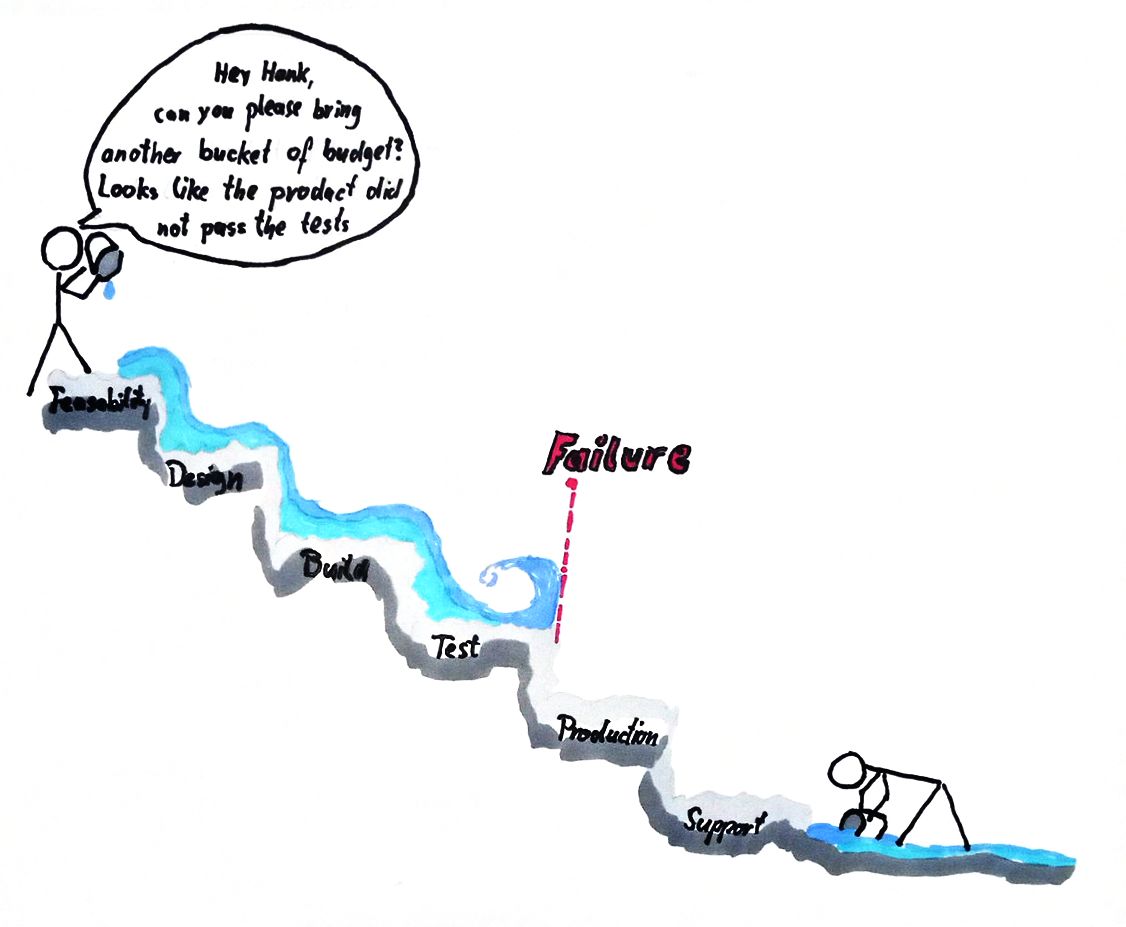 Hey Hank,
can you please bring
another bucket of budget?
Looks like the product did
not pass the tests
Feasability
Design
Failure
Build
Test
Production
Support